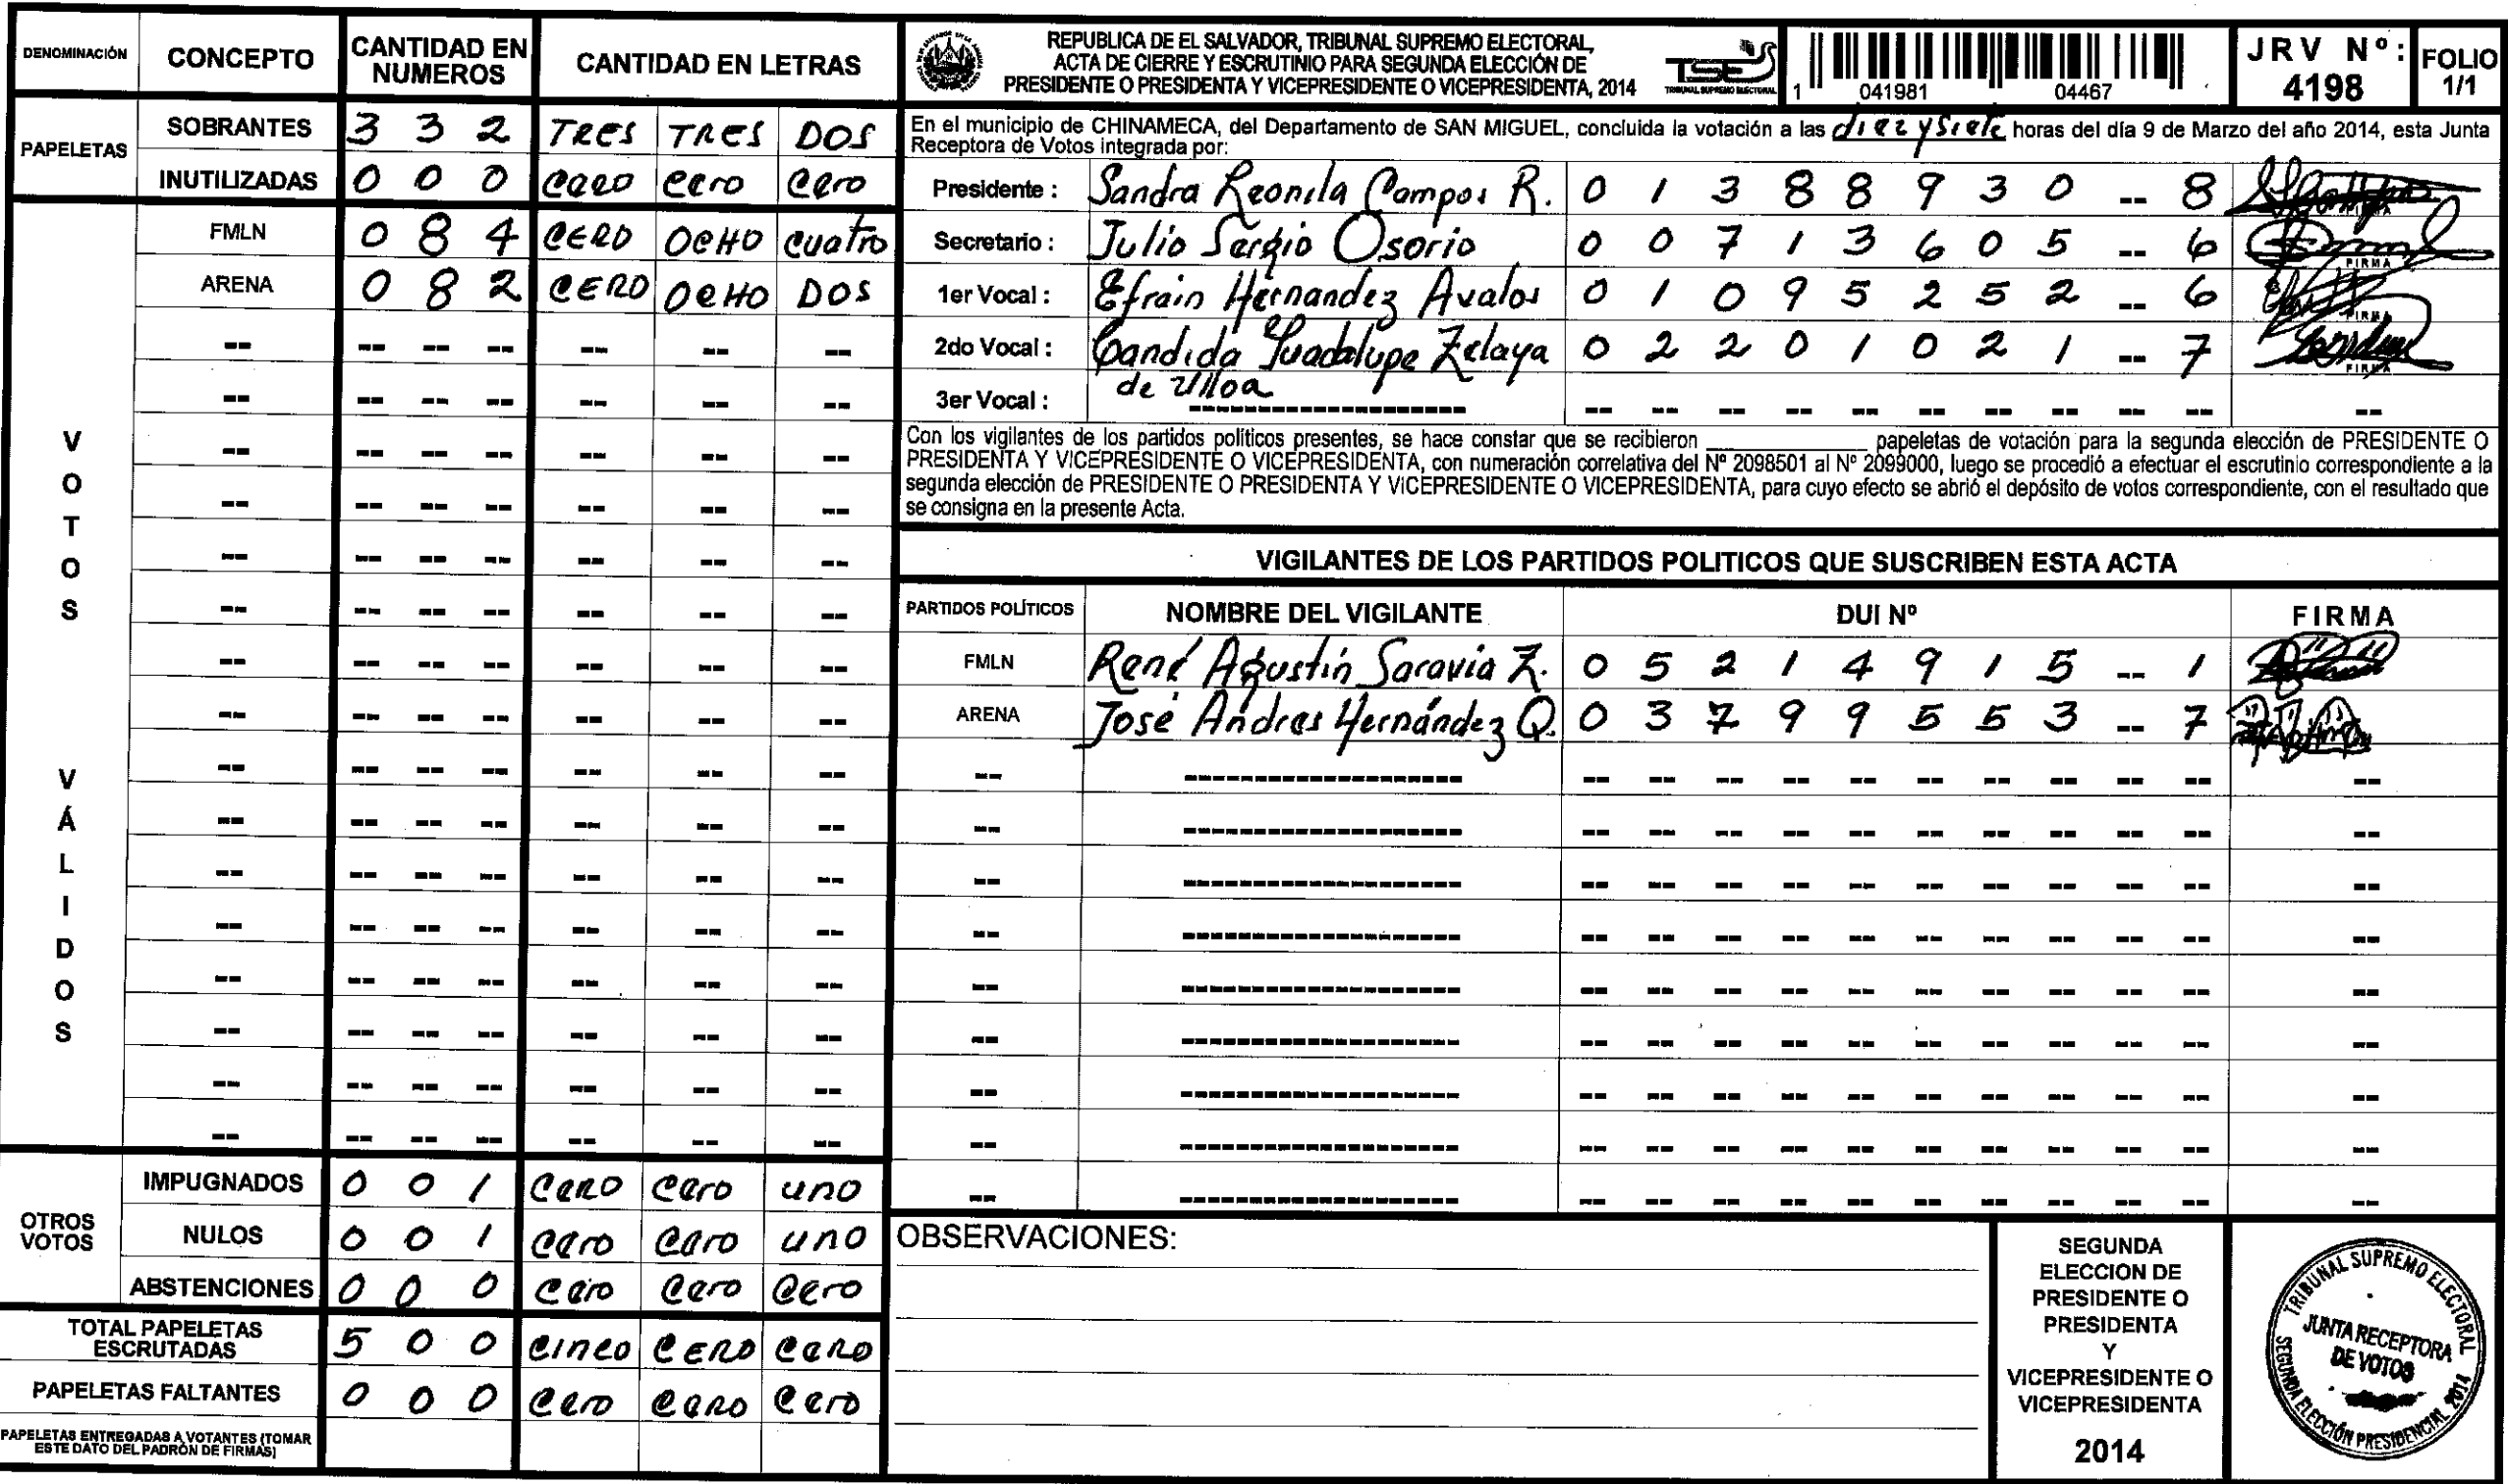 DENOMINACIÓN CONCEPTO CANTIDAD EN NUMEROS CANTIDAD EN LETRAS
PAPELETAS
SOBRANTES 3 3 2 TRES TRES DOS
INUTILIZADAS 0 0 0 cero cero cero
VOTOS VÁLIDOS
FMLN 0 8 4 CERO OCHO cuatro
ARENA 0 8 2 CERO OCHO DOS
OTROS VOTOS
IMPUGNADOS 0 0 1 cero cero uno
NULOS 0 0 1 cero cero uno
ABSTENCIONES 0 0 0 cero cero cero
TOTAL PAPELETAS ESCRUTADAS 5 0 0 cinco CERO cero
PAPELETAS FALTANTES 0 0 0 cero cero cero
PAPELETAS ENTREGADAS A VOTANTES (TOMAR
ESTE DATO DEL PADRÓN DE FIRMAS)
REPUBLICA DE EL SALVADOR, TRIBUNAL SUPREMO ELECTORAL,
ACTA DE CIERRE Y ESCRUTINIO PARA SEGUNDA ELECCIÓN DE
PRESIDENTE O PRESIDENTA Y VICEPRESIDENTE O VICEPRESIDENTA, 2014
TSE
TRIBUNAL SUPREMO ELECTORAL
1 041981 04467
JRV Nº: 4198
FOLIO 1/1
En el municipio de CHINAMECA, del Departamento de SAN MIGUEL, concluida la votación a las diez y siete horas del día 9 de Marzo del año 2014, esta Junta
Receptora de Votos integrada por:
Presidente : Sandra Leonila Campos R. 0 1 3 8 8 9 3 0 -- 8
Secretario : Julio Sergio Osorio 0 0 7 1 3 6 0 5 -- 6 FIRMA
1er Vocal : Efrain Hernandez Avalos 0 1 0 9 5 2 5 2 -- 6 FIRMA
2do Vocal : Candida Guadalupe Zelaya de Ulloa 0 2 2 0 1 0 2 1 -- 7 FIRMA
3er Vocal :
Con los vigilantes de los partidos políticos presentes, se hace constar que se recibieron ____________ papeletas de votación para la segunda elección de PRESIDENTE O
PRESIDENTA Y VICEPRESIDENTE O VICEPRESIDENTA, con numeración correlativa del Nº 2098501 al Nº 2099000, luego se procedió a efectuar el escrutinio correspondiente a la
segunda elección de PRESIDENTE O PRESIDENTA Y VICEPRESIDENTE O VICEPRESIDENTA, para cuyo efecto se abrió el depósito de votos correspondiente, con el resultado que
se consigna en la presente Acta.
VIGILANTES DE LOS PARTIDOS POLITICOS QUE SUSCRIBEN ESTA ACTA
PARTIDOS POLÍTICOS NOMBRE DEL VIGILANTE DUI Nº FIRMA
FMLN René Agustín Saravia Z. 0 5 2 1 4 9 1 5 -- 1
ARENA José Andres Hernández Q. 0 3 7 9 9 5 5 3 -- 7
OBSERVACIONES:
SEGUNDA
ELECCION DE
PRESIDENTE O
PRESIDENTA
Y
VICEPRESIDENTE O
VICEPRESIDENTA
2014
TRIBUNAL SUPREMO ELECTORAL
JUNTA RECEPTORA
DE VOTOS
SEGUNDA ELECCIÓN PRESIDENCIAL 2014